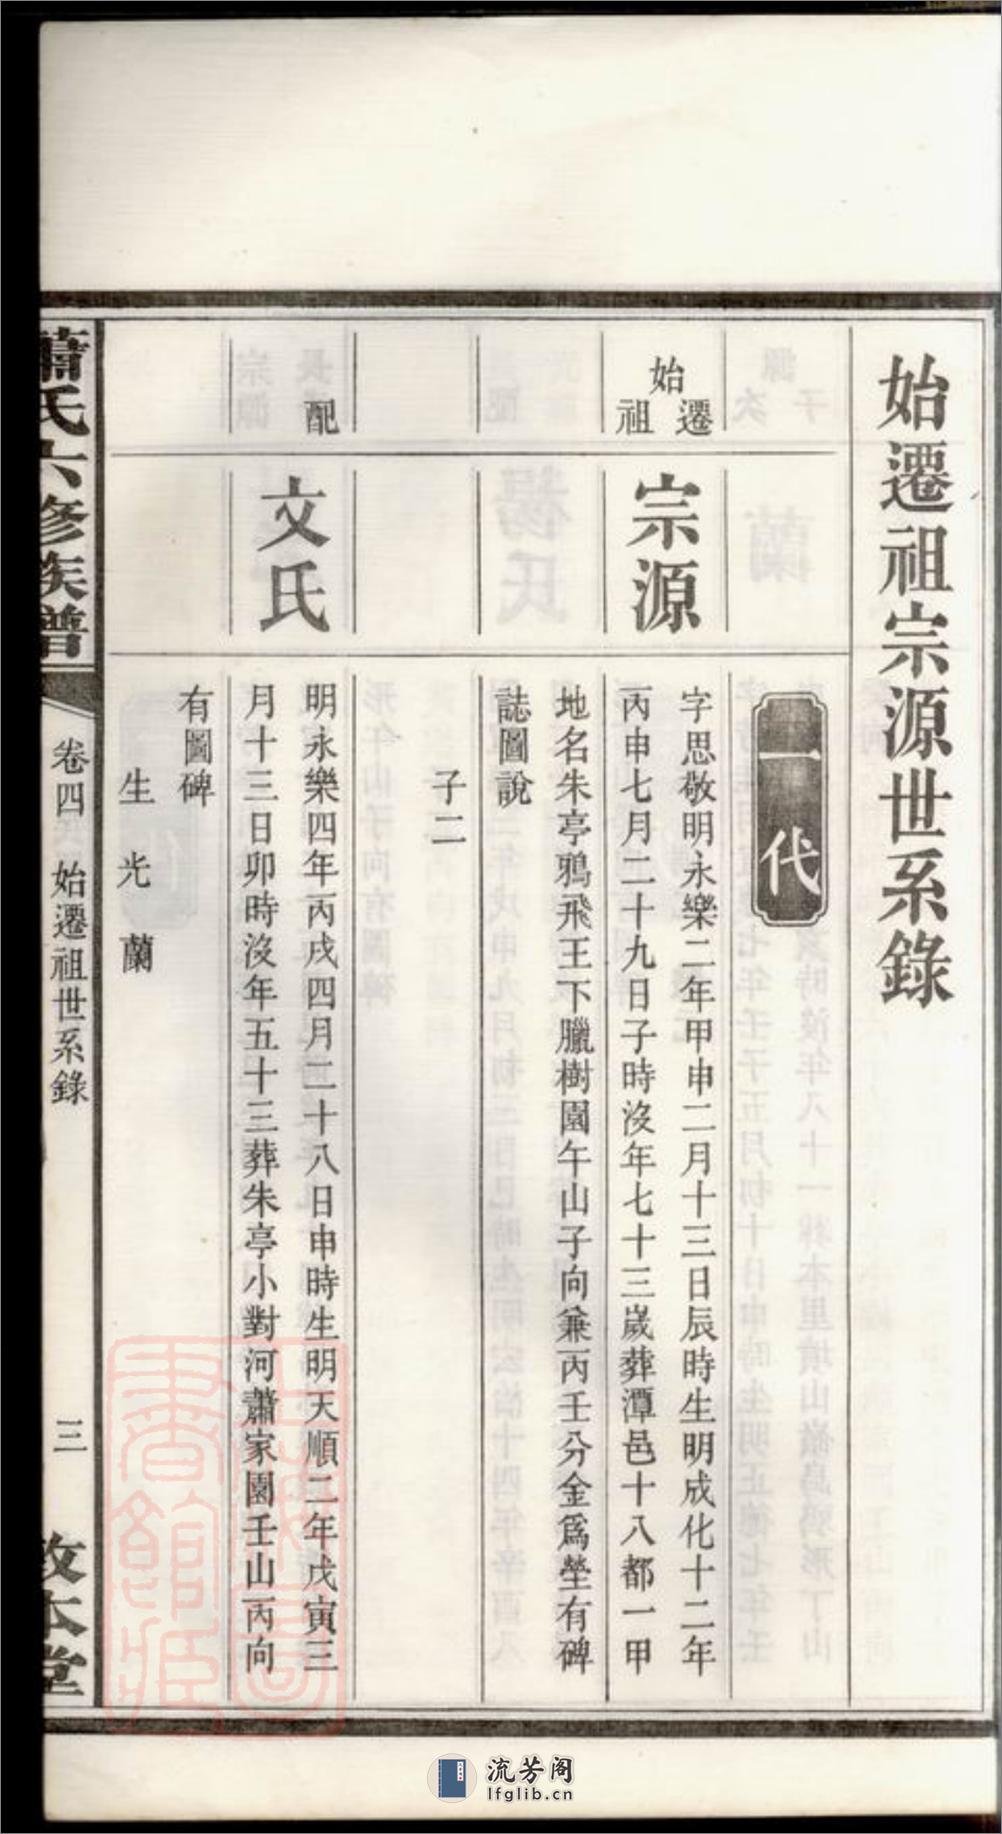 始遷祖宗源世系錄
一代
始遷祖
宗源
字思敬明永樂二年甲申二月十三日辰時生明成化十二年
丙申七月二十九日子時沒年七十三歲葬潭邑十八都一甲
地名朱亭鴉飛王下臘樹園午山子向兼丙壬分金爲塋有碑
誌圖說
子二
配
文氏
明永樂四年丙戌四月二十八日申時生明天順二年戊寅三
月十三日卯時沒年五十三葬朱亭小對河蕭家園壬山丙向
有圖碑
生光蘭
蕭氏六修族譜
卷四 始遷祖世系錄
三
敦本堂
流芳阁
lfglib.cn